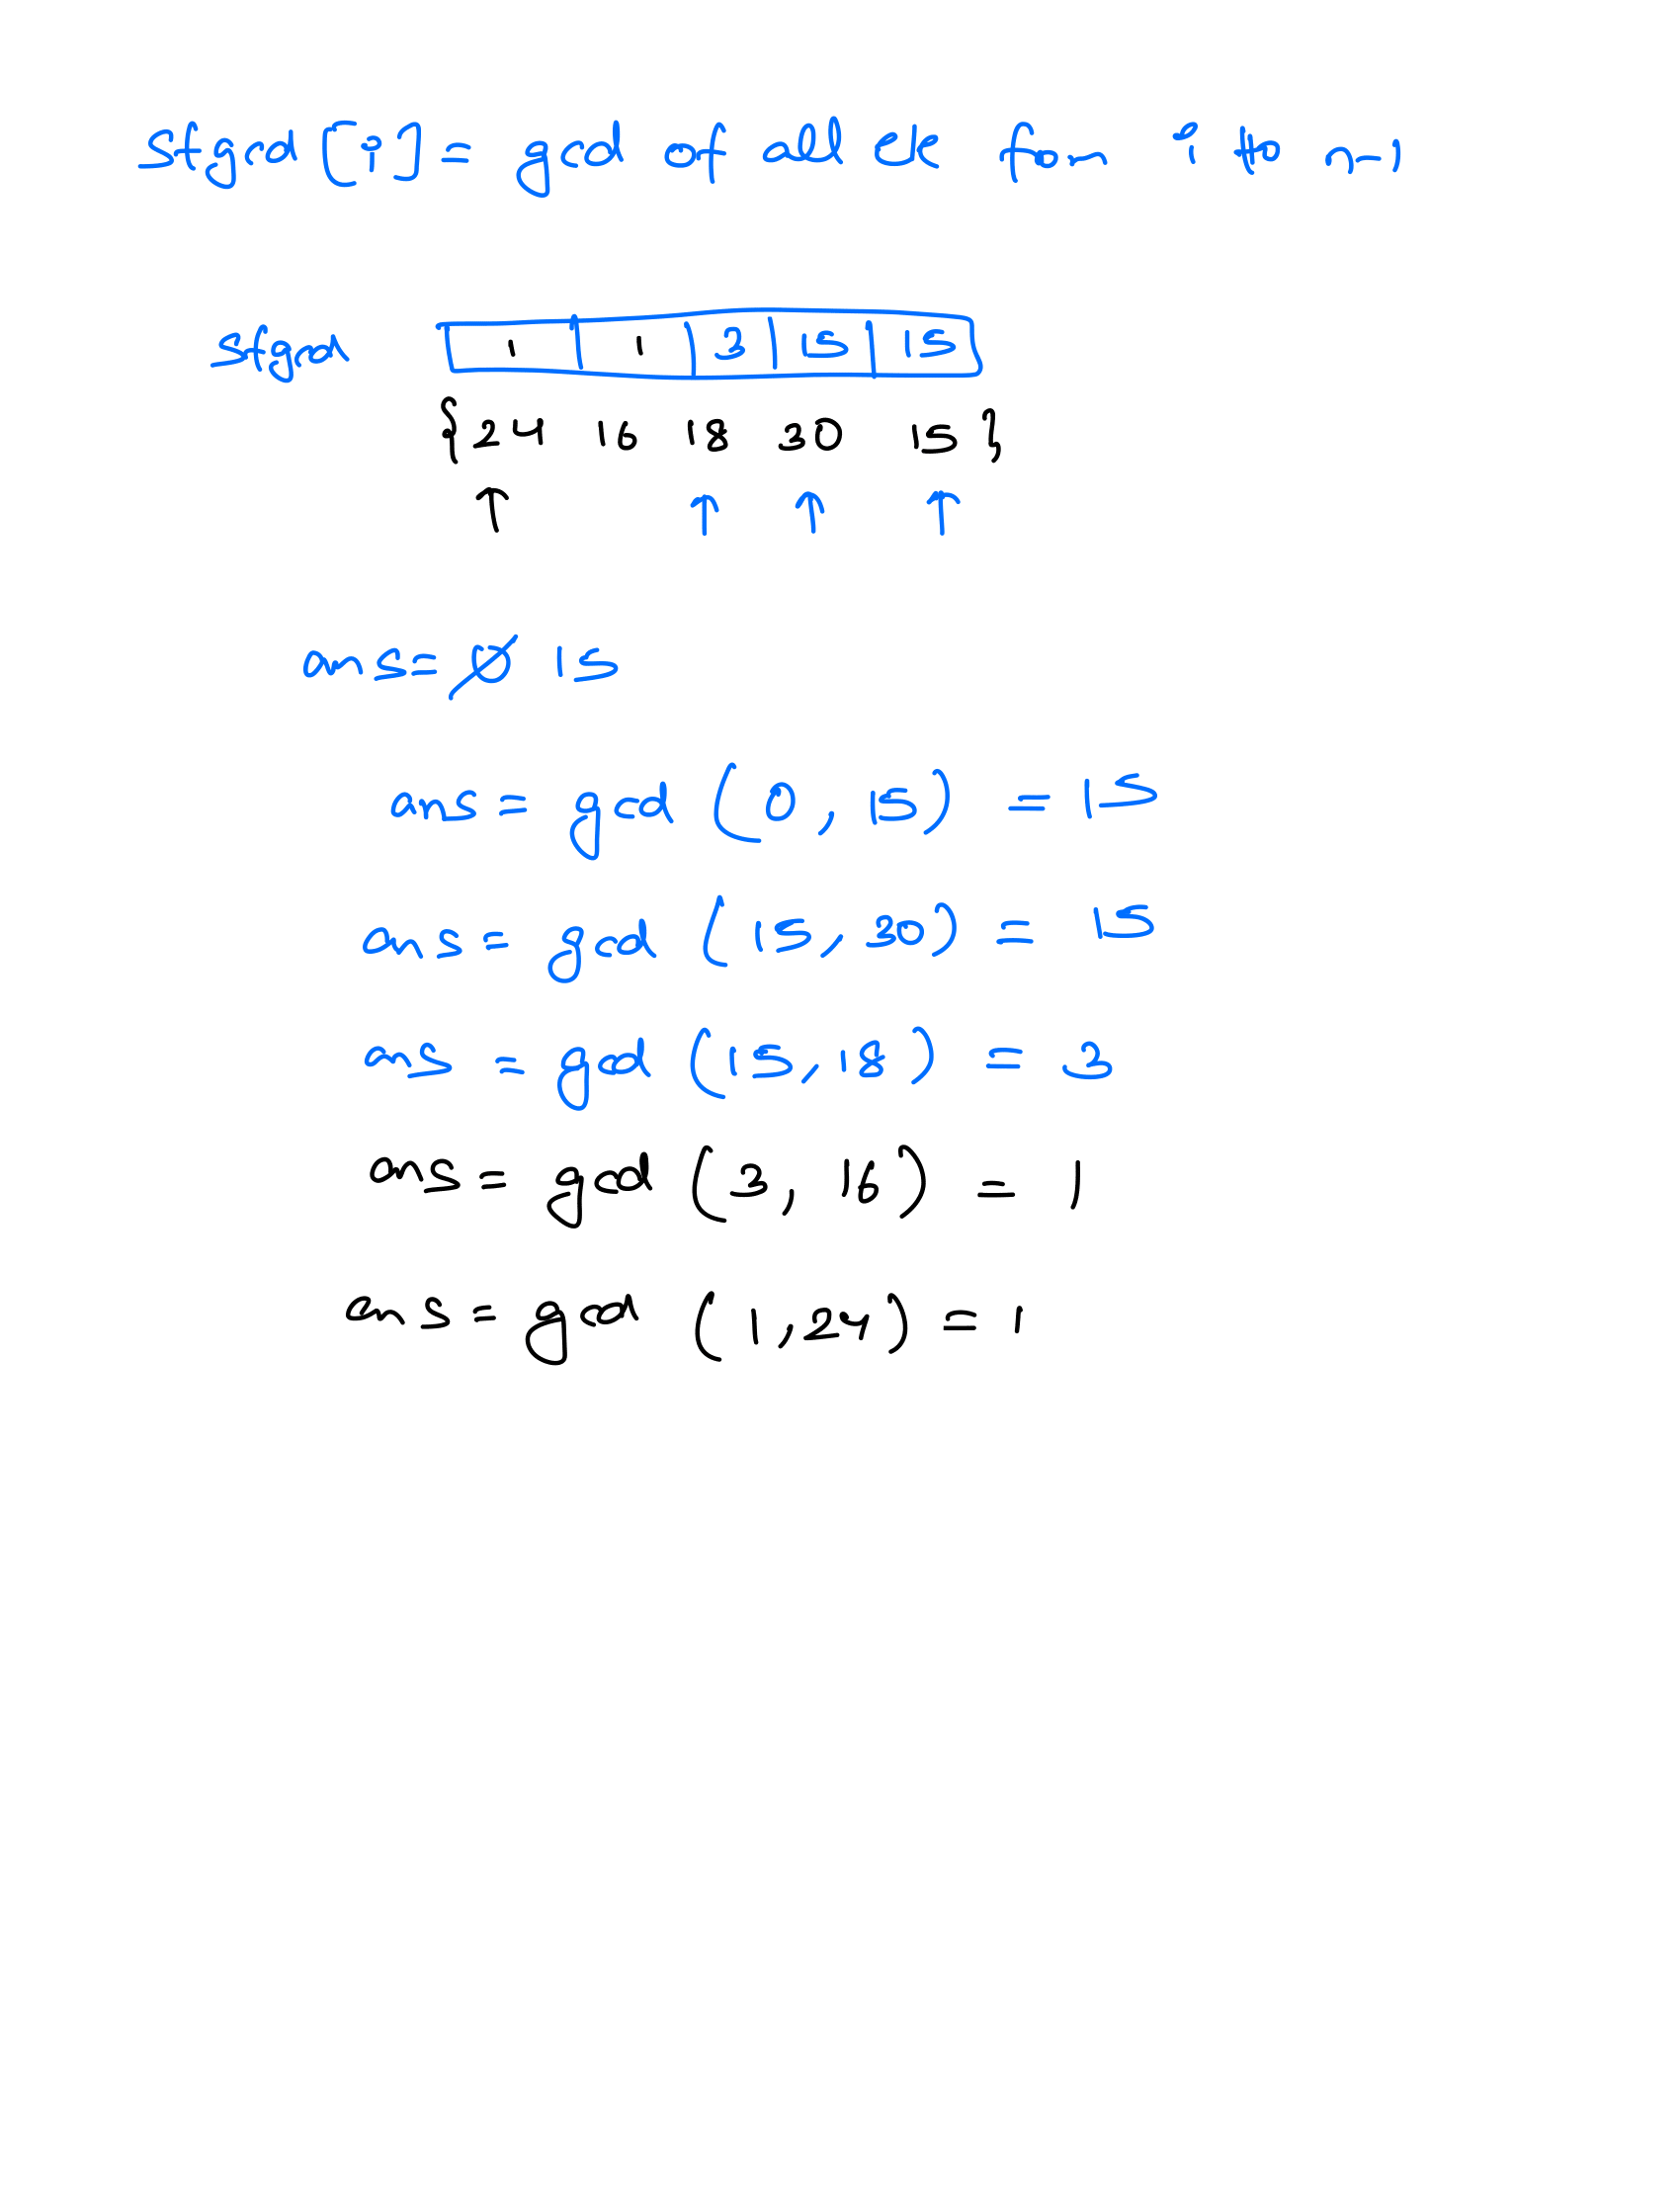 Sfgcd [i] = gcd of all ele from i to n-1
Sfgcd 1 1 3 15 15
{ 24 16 18 30 15 }
↑ ↑ ↑ ↑
ans = 0 15
ans = gcd (0, 15) = 15
ans = gcd (15, 30) = 15
ans = gcd (15, 18) = 3
ans = gcd (3, 16) = 1
ans = gcd (1, 24) = 1